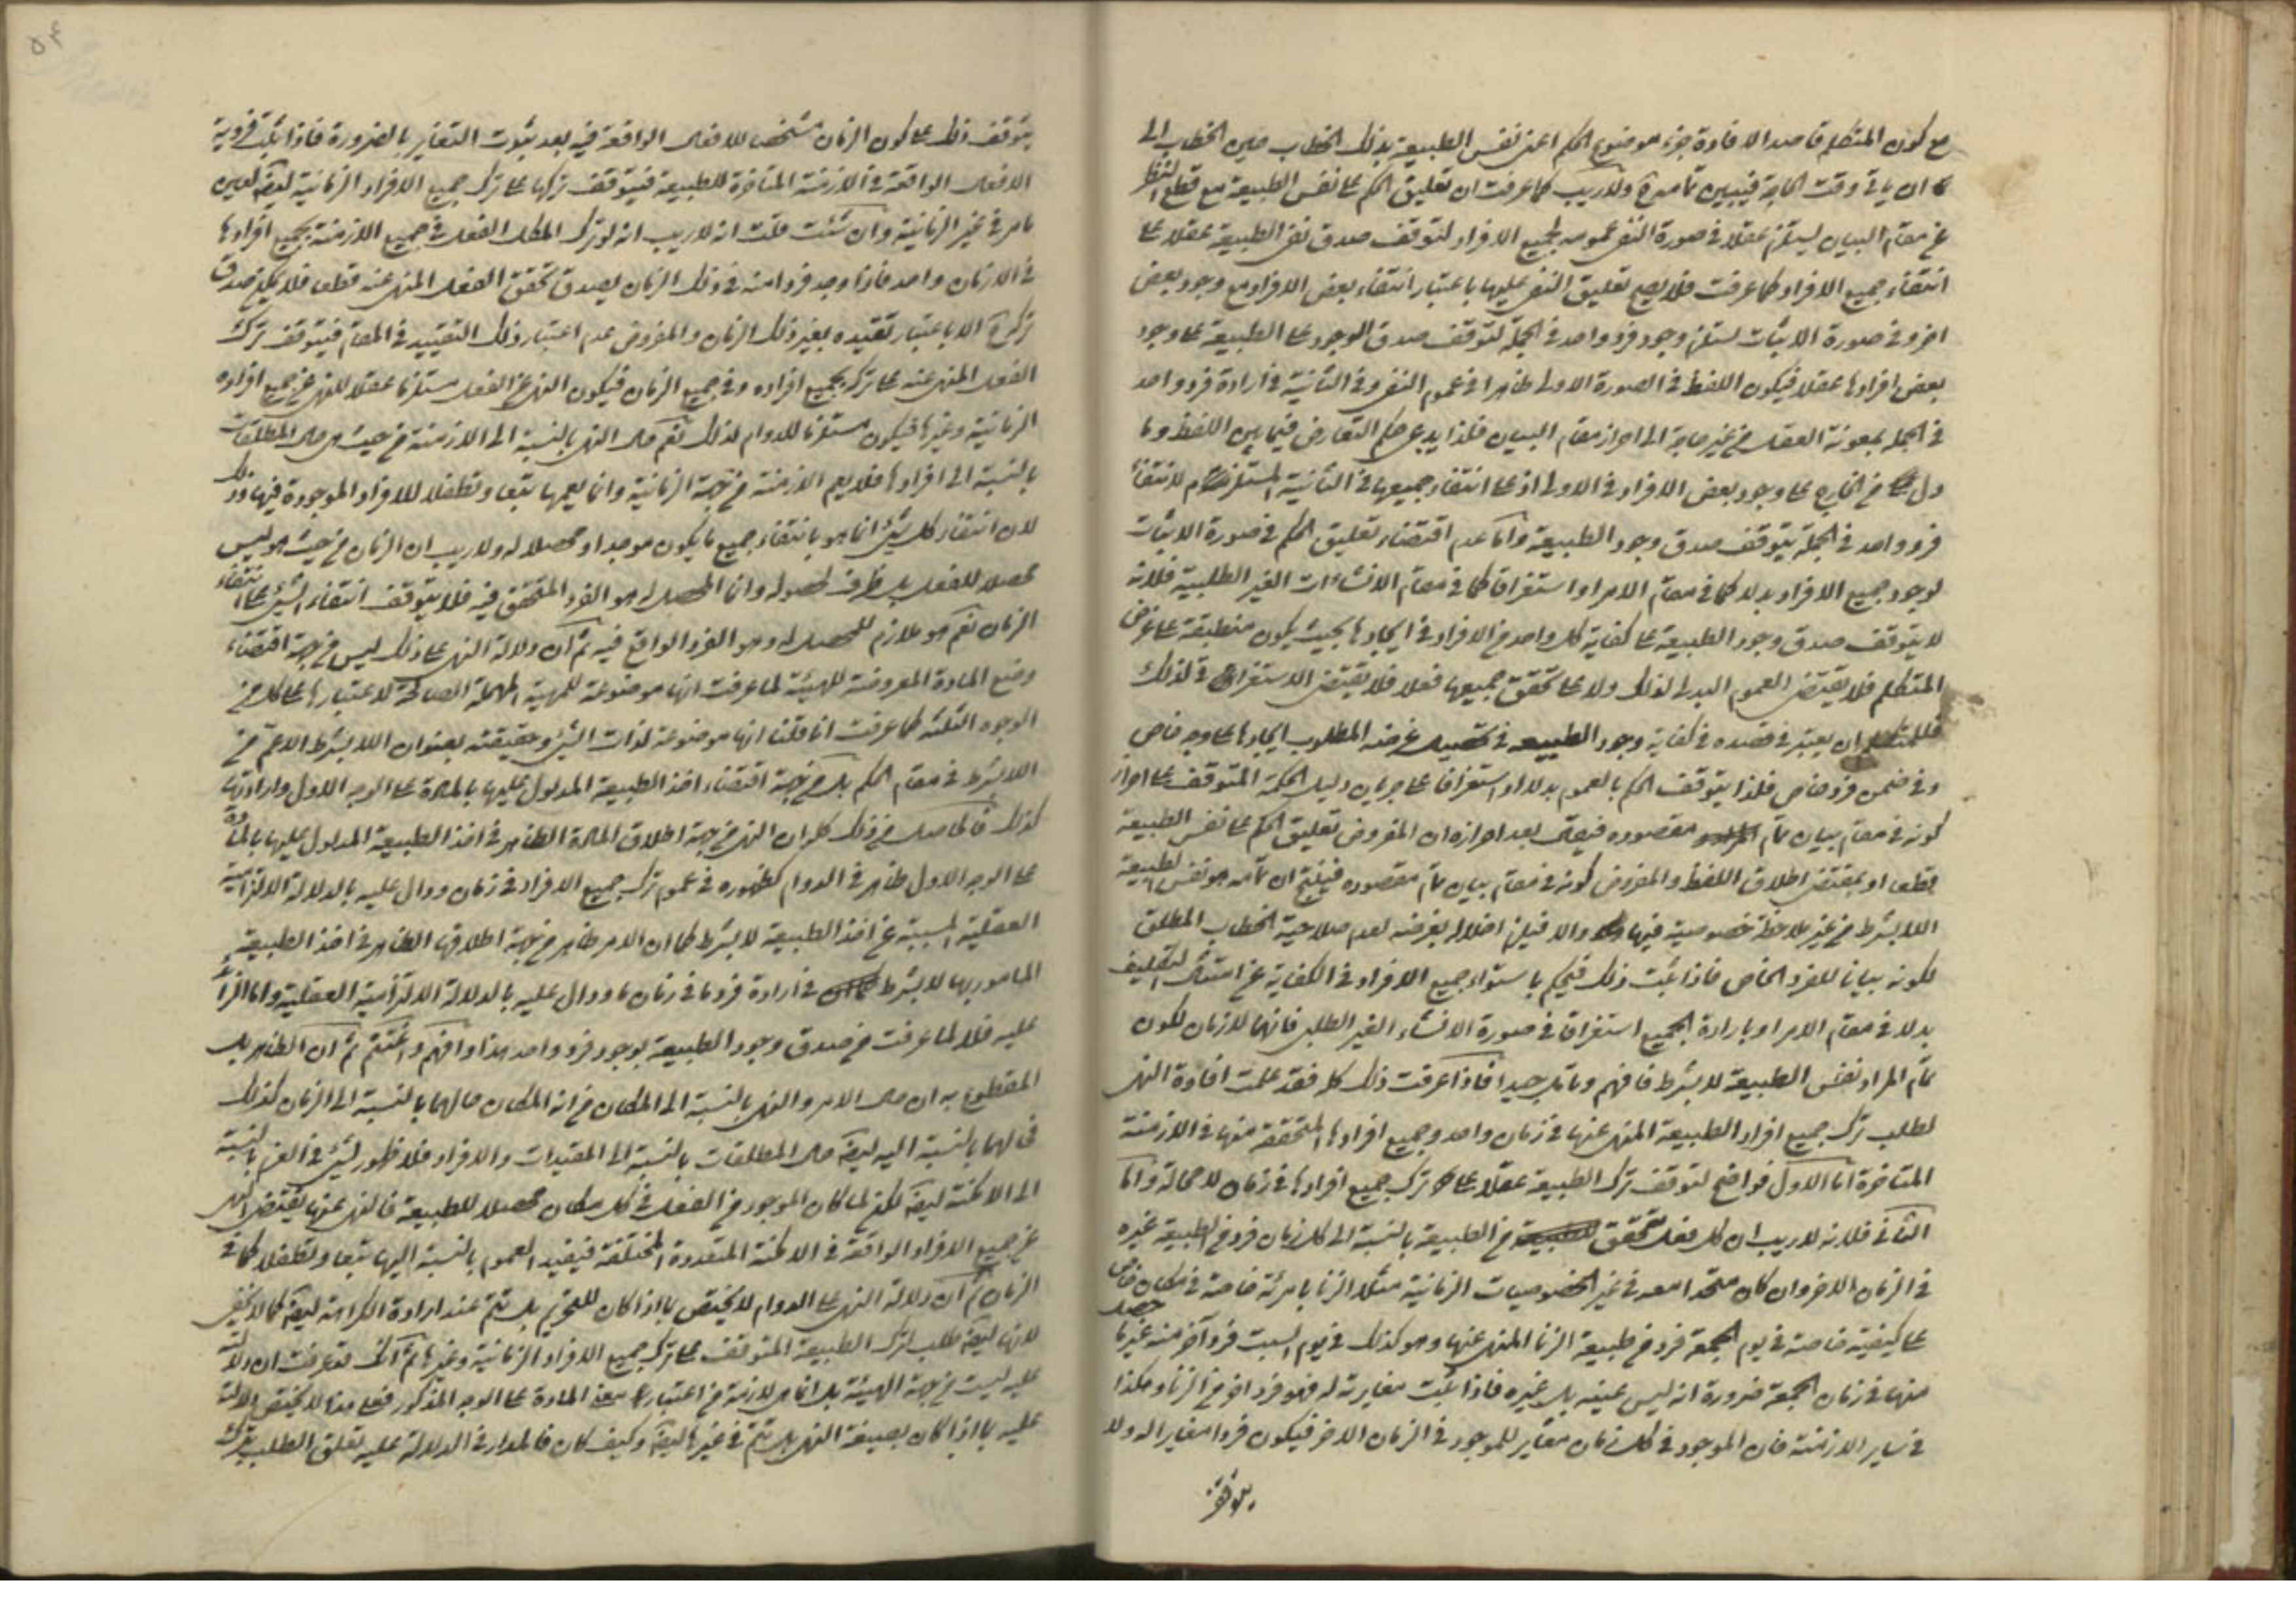 مع كون المتكلم قاصد الافادة جزء موضوع الحكم اعنى نفس الطبيعة بذلك الخطاب حين الخطاب الى
ان ياتى وقت الحاجة فيبين تمامه ولا ريب كما عرفت ان تعليق الحكم على نفس الطبيعة مع قطع النظر
عن مقام البيان يستلزم عقلا فى صورة النفى عمومه لجميع الافراد لتوقف صدق نفى الطبيعة عقلا على
انتفاء جميع الافراد كما عرفت فلا يصح تعليق النفى عليها باعتبار انتفاء بعض الافراد مع وجود بعض
اخر وفى صورة الاثبات يستلزم وجود فرد واحد فى الجملة لتوقف صدق الوجود على الطبيعة على وجود
بعض افرادها عقلا فيكون اللفظ فى الصورة الاولى ظاهرا فى عموم النفى وفى الثانية فى ارادة فرد واحد
فى الجملة بمعونة العقل من غير حاجة الى احراز مقام البيان فلذا يدعى حكم التعارض فيما بين اللفظ وما
دل من الخارج على وجود بعض الافراد فى الاولى اذ على انتفاء جميعها فى الثانية المستلزم لانتفاء
فرد واحد فى الجملة يتوقف صدق وجود الطبيعة واما عدم اقتضاء تعليق الحكم فى صورة الاثبات
لوجود جميع الافراد بدلا كما فى مقام الامر او استغراقا كما فى مقام الانشاءات الغير الطلبية فلانه
لا يتوقف صدق وجود الطبيعة على كفاية كل واحد من الافراد فى ايجادها بحيث يكون منطبقة على غرض
المتكلم فلا يقتضى العموم البدلى لذلك ولا على تحقق جميعها فعلا فلا يقتضى الاستغراق لذلك
فللمتكلم ان يعتبر فى قصده فى كفاية وجود الطبيعة فى تحصيل غرضه المطلوب ايجادها على وجه خاص
وفى ضمن فرد خاص فلذا يتوقف الحكم بالعموم بدلا او استغراقا على جريان دليل الحكمة المتوقف على احراز
كونه فى مقام بيان تمام مقصوده فيقال بعد احرازه ان المفروض تعليق الحكم على نفس الطبيعة
قطعا او بمقتضى اطلاق اللفظ والمفروض كونه فى مقام بيان تمام مقصوده فينتج ان تمامه هو نفس الطبيعة
اللابشرط من غير ملاحظة خصوصية فيها والا فيلزم اخلاله بغرضه لعدم صلاحية الخطاب المطلق
لكونه بيانا للفرد الخاص فاذا ثبت ذلك فيحكم باستواء جميع الافراد فى الكفاية عن امتثال التكليف
بدلا فى مقام الامر او بارادة الجميع استغراقا فى صورة الانشاء الغير الطلبى فانهما لازمان لكون
تمام المراد نفس الطبيعة لا بشرط فافهم وتامل جيدا فاذا عرفت ذلك كله فقد علمت افادة النهى
لطلب ترك جميع افراد الطبيعة المنهى عنها فى زمان واحد وجميع افرادها المتحققة منها فى الازمنة
المتاخرة اما الاول فواضح لتوقف ترك الطبيعة عقلا على ترك جميع افرادها فى زمان لا محالة واما
الثانى فلانه لا ريب ان كل فعل تحقق من الطبيعة بالنسبة الى كل زمان فرد من الطبيعة غيره
فى الزمان الاخر وان كان متحدا معه فى غير الخصوصيات الزمانية مثلا الزنا بامرئة خاصة فى مكان خاص
على كيفية خاصة فى يوم الجمعة فرد من طبيعة الزنا المنهى عنها وهو كذلك فى يوم السبت فرد آخر منه غير ما حصل
منها فى زمان الجمعة ضرورة انه ليس عينه بل غيره فاذا ثبت مغايرته له فهو فرد اخر من الزنا وهكذا
فى ساير الازمنة فان الموجود فى كل زمان مغاير للموجود فى الزمان الاخر فيكون فردا مغايرا له ولا
يتوقف
۵۴
يتوقف ذلك على كون الزمان مشخصا للافعال الواقعة فيه بعد ثبوت التغاير بالضرورة فاذا ثبت فردية
الافعال الواقعة فى الازمنة المتاخرة للطبيعة فيتوقف تركها على ترك جميع الافراد الزمانية ايضا لعين
ما مر فى غير الزمانية وان شئت قلت انه لا ريب انه لو ترك المكلف الفعل فى جميع الازمنة بجميع افرادها
فى الا زمان واحد فاذا وجد فردا منه فى ذلك الزمان يصدق تحقق الفعل المنهى عنه قطعا فلا يمكن صدق
تركه الا باعتبار تقييده بغير ذلك الزمان والمفروض عدم اعتبار ذلك التقييد فى المقام فيتوقف ترك
الفعل المنهى عنه على تركه بجميع افراده وفى جميع الزمان فيكون النهى عن الفعل مستلزما عقلا للنهى عن جميع افراده
الزمانية وغيرها فيكون مستلزما للدوام لذلك نعم حال النهى بالنسبة الى الازمنة من حيث هى حال المطلقات
بالنسبة الى افرادها فلا يعم الازمنة من جهة الزمانية وانما يعمها تبعا وتطفلا للافراد الموجودة فيها وذلك
لان انتفاء كل شىء انما هو بانتفاء جميع ما يكون موجدا ومحصلا له ولا ريب ان الزمان من حيث هو ليس
محصلا للفعل بل ظرف لحصوله وانما المحصل له هو الفرد المتحقق فيه فلا يتوقف انتفاء الشىء على انتفاء
الزمان نعم هو ملازم للمحصل له وهو الفرد الواقع فيه ثم ان دلالة النهى على ذلك ليس من جهة اقتضاء
وضع المادة المعروضة للهيئة لما عرفت انها موضوعة للمهية المهملة الصالحة لاعتبارها على كل من
الوجوه الثلثة كما عرفت انا قلنا انها موضوعة لذات الشىء وحقيقته بعنوان اللابشرط الاعم من
اللابشرط فى مقام الحكم بل من جهة اقتضاء اخذ الطبيعة المدلول عليها بالمادة على الوجه الاول وارادتها
كذلك فالحاصل من ذلك كله ان النهى من جهة اطلاق المادة الظاهر فى اخذ الطبيعة المدلول عليها بالمادة
على الوجه الاول ظاهر فى الدوام كظهوره فى عموم ترك جميع الافراد فى زمان ودال عليه بالدلالة الالتزامية
العقلية المسببة عن اخذ الطبيعة لا بشرط كما ان الامر ظاهر من جهة اطلاقها الظاهر فى اخذ الطبيعة
المامور بها لا بشرط فى ارادة فرد ما فى زمان ما ودال عليه بالدلالة الالتزامية العقلية واما الزائد
عليه فلا لما عرفت من صدق وجود الطبيعة بوجود فرد واحد هذا وافهم واغتنم ثم ان الظاهر بل
المقطوع به ان حال الامر والنهى بالنسبة الى المكان من انه المكان حالهما بالنسبة الى الزمان كذلك
فحالهما بالنسبة اليه ايضا حال المطلقات بالنسبة الى المقيدات والافراد فلا ظهور لشىء فى العموم بالنسبة
الى الامكنة ايضا لكن لما كان الموجود من الفعل فى كل مكان محصلا للطبيعة فالنهى عنها يقتضى النهى
عن جميع الافراد الواقعة فى الامكنة المتعددة المختلفة فيفيد العموم بالنسبة اليها تبعا وتطفلا كما فى
الزمان ثم ان دلالة النهى على الدوام لا يختص بما اذا كان للتحريم بل يتم عند ارادة الكراهة ايضا كما لا يخفى
لانها ايضا طلب لترك الطبيعة المتوقف على ترك جميع الافراد الزمانية وغيرها ثم انك قد عرفت ان دلالته
عليه ليست من جهة الهيئة بل انما هى لازمة من اعتبار معنى المادة على الوجه المذكور فعلى هذا لا يختص الدلالة
عليه بما اذا كان بصيغة النهى بل يتم فى غيرها ايضا وكيف كان فالمدار فى الدلالة عليه تعلق الطلب بترك